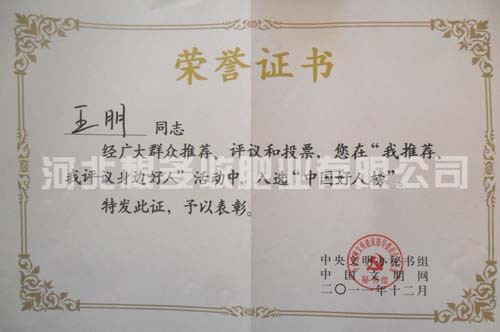 荣誉证书
王明 同志
经广大群众推荐、评议和投票,您在“我推荐、
我评议身边好人”活动中,入选“中国好人榜”。
特发此证,予以表彰。
中央文明办秘书组
中国文明网
二〇一一年十二月
秘书组